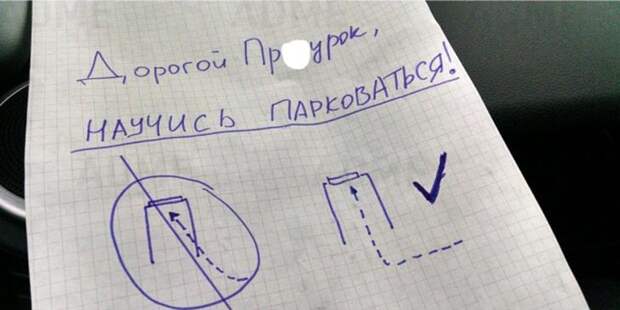 Дорогой Пр урок,
НАУЧИСЬ ПАРКОВАТЬСЯ!